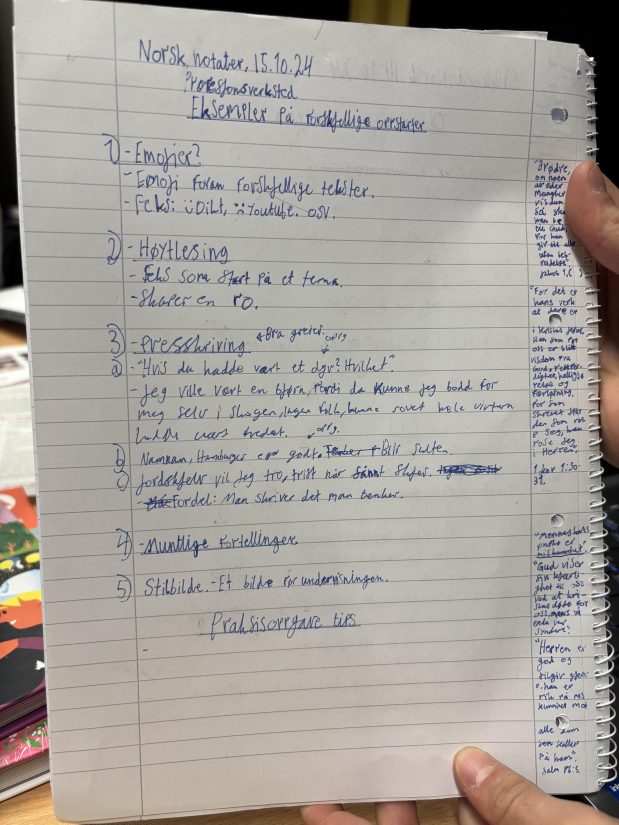 Norsk notater, 15.10.24
"Poesjonsverksted
Eksempler på forskjellige oppstarter
1) - Emojier?
- Emoji foran forskjellige tekster.
- Feks: Dikt, Youtube. osv.
2) - Høytlesing
- Feks som start på et tema.
- Skaper en ro.
3) - Presskriving
Bra greier.
a) - "Hvis du hadde vært et dyr? Hvilket".
- Jeg ville vært en bjørn, fordi da kunne jeg bodd for
meg selv i skogen, ingen folk, kunne sovet hele vintern
hadde vært fredet.
b) Namnam, Hamburger er godt. Blir sulten.
c) Jordskjelv vil jeg tro, trist når sånnt skjer.
- Fordel: Man skriver det man tenker.
4) - Muntlige Fortellinger.
5) Stilbilde. - Et bilde for undervisningen.
Praksisoppgave tips
-
"Brødre,
om noen
av eder
mangler
visdom
da
han be
til Gud,
for han
gir til alle
uten
"For det er
hans verk
at dere er
i Kristus Jesus,
Han som for
oss er blitt
visdom fra
Gud, rettfer-
dighet, hellig-
gjørelse og
forløsning,
for som
skrevet står
den som
seg, han
rose seg
i Herren."
1 kor 1:30-
31.
"Menneskets
er
miskunnhet"
"Gud viser
sin kjærli-
ghet til oss
ved at Kri-
stus døde for
oss, mens vi
enda var
syndere."
"Herren er
god og
tilgir
han er
rik på mis
kunnhet mot
alle som
som kaller
på ham".
Salm 86:5.